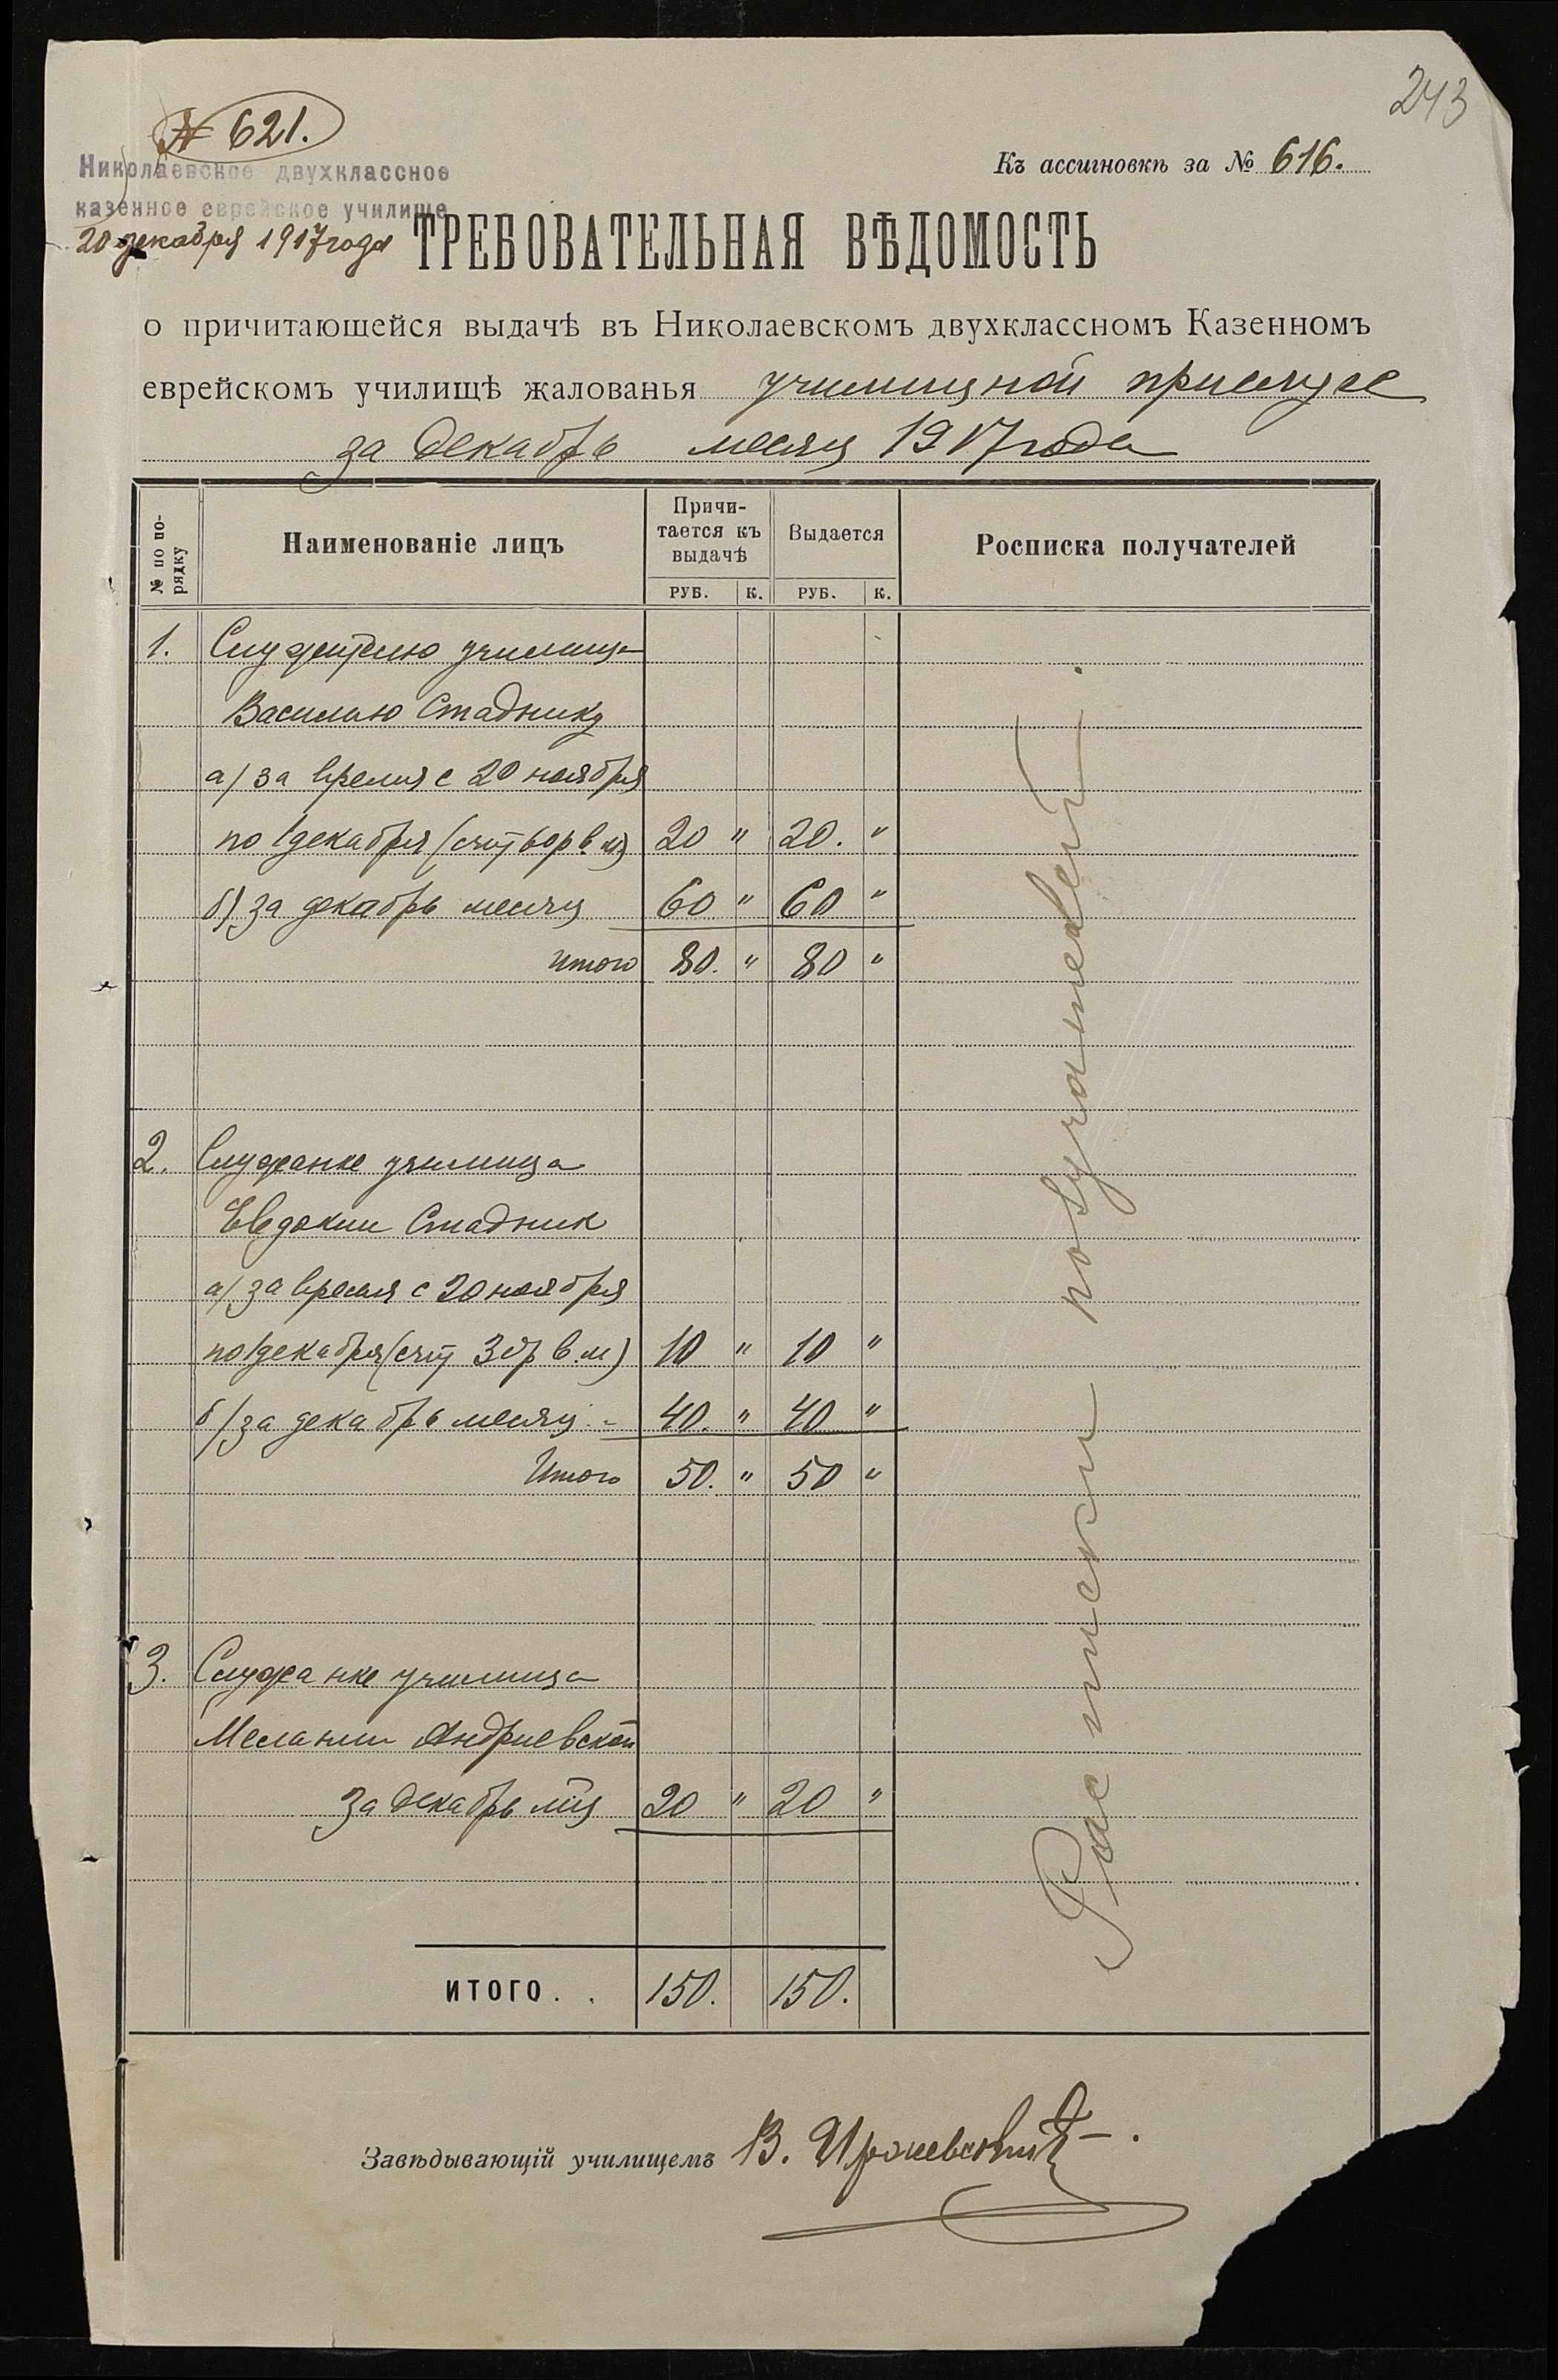 243
№ 621.
Николаевское двухклассное
казенное еврейское училище
20 декабря 1917 года
Къ ассигновкѣ за № 616.
ТРЕБОВАТЕЛЬНАЯ ВѢДОМОСТЬ
о причитающейся выдачѣ въ Николаевскомъ двухклассномъ Казенномъ
еврейскомъ училищѣ жалованья училищной прислуге
за декабрь месяц 1917 года
№ по по-
рядку
Наименованіе лицъ
Причи-
тается къ
выдачѣ
Выдается
Росписка получателей
РУБ. К. РУБ. К.
1. Служителю училища
Василию Стаднику
а) за время с 20 ноября
по 1 декабря (счит 60 р в. м) 20 " 20. "
б) за декабрь месяц 60 " 60 "
итого 80. " 80 "
2. Служанке училища
Евдокии Стадник
а) за время с 20 ноября
по 1 декабря (счит 30 р в. м) 10 " 10 "
б) за декабрь месяц - 40. " 40 "
Итого 50. " 50 "
3. Служанке училища
Мелании Андриевской
за декабрь м-ц 20 " 20 "
ИТОГО. . 150. 150.
Расписки получателей.
Завѣдывающій училищемъ В.